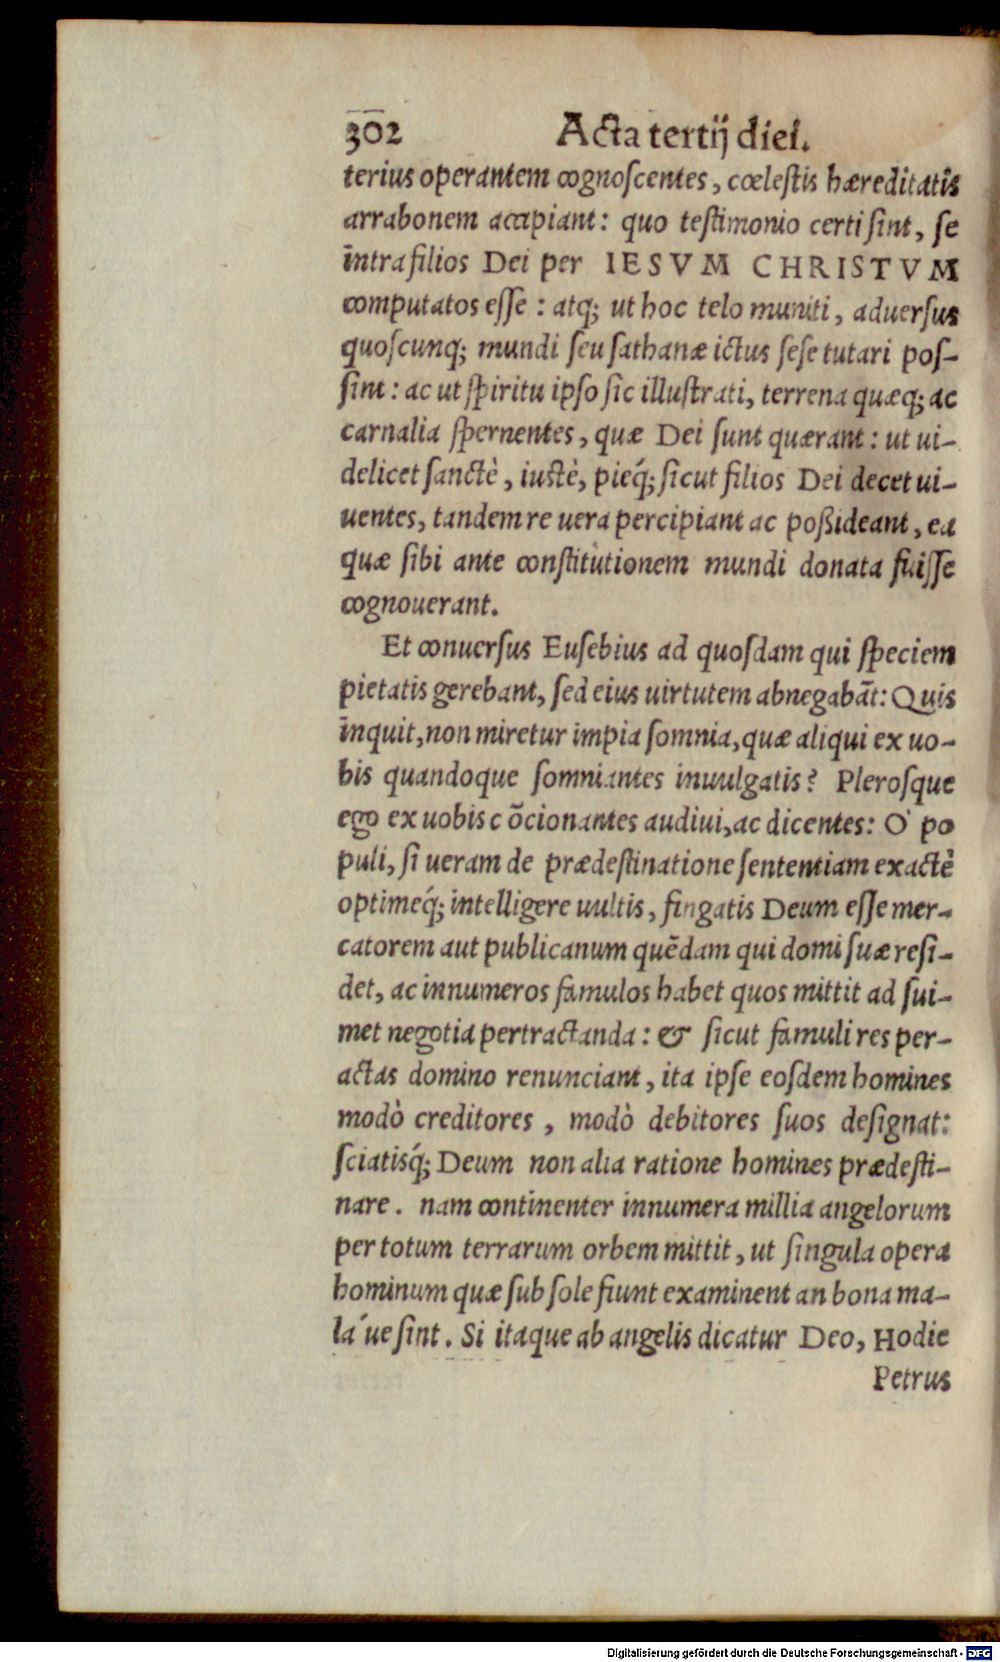 302 Acta tertij diei.
terius operantem cognoſcentes, cœleſtis hæreditatis
arrabonem accipiant: quo teſtimonio certi ſint, ſe
intra filios Dei per IESVM CHRISTVM
computatos eſſe : atq; ut hoc telo muniti, aduerſus
quoſcunq; mundi ſeu ſathanæ ictus ſeſe tutari poſ-
ſint: ac ut ſpiritu ipſo ſic illuſtrati, terrena quæq; ac
carnalia ſpernentes, quæ Dei ſunt quærant: ut ui-
delicet ſanctè, iustè, pieq́; ſicut filios Dei decet ui-
uentes, tandem re uera percipiant ac poßideant, ea
quæ ſibi ante conſtitutionem mundi donata fuiſſe
cognouerant.
Et conuerſus Euſebius ad quoſdam qui ſpeciem
pietatis gerebant, ſed eius uirtutem abnegabāt: Quis
inquit, non miretur impia ſomnia, quæ aliqui ex uo-
bis quandoque ſomniantes inuulgatis? Pleroſque
ego ex uobis cōcionantes audiui, ac dicentes: O' po
puli, ſi ueram de prædeſtinatione ſententiam exactè
optimeq́; intelligere uultis, fingatis Deum eſſe mer-
catorem aut publicanum quēdam qui domi ſuæ reſi-
det, ac innumeros famulos habet quos mittit ad ſui-
met negotia pertractanda: & ſicut famuli res per-
actas domino renunciant, ita ipſe eoſdem homines
modò creditores, modò debitores ſuos deſignat:
ſciatisq́; Deum non alia ratione homines prædeſti-
nare. nam continenter innumera millia angelorum
per totum terrarum orbem mittit, ut ſingula opera
hominum quæ ſub ſole fiunt examinent an bona ma-
la'ue ſint. Si itaque ab angelis dicatur Deo, Hodie
Petrus
Digitalisierung gefördert durch die Deutsche Forschungsgemeinschaft - DFG